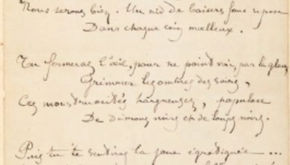 Nous serons bien. Un nid de baisers fous repose
Dans chaque coin moelleux.
Tu fermeras l'œil, pour ne point voir, par la glace,
Grimacer les ombres des soirs,
Ces monstruosités hargneuses, populace
De démons noirs et de loups noirs.
Puis tu te sentiras la joue égratignée ...